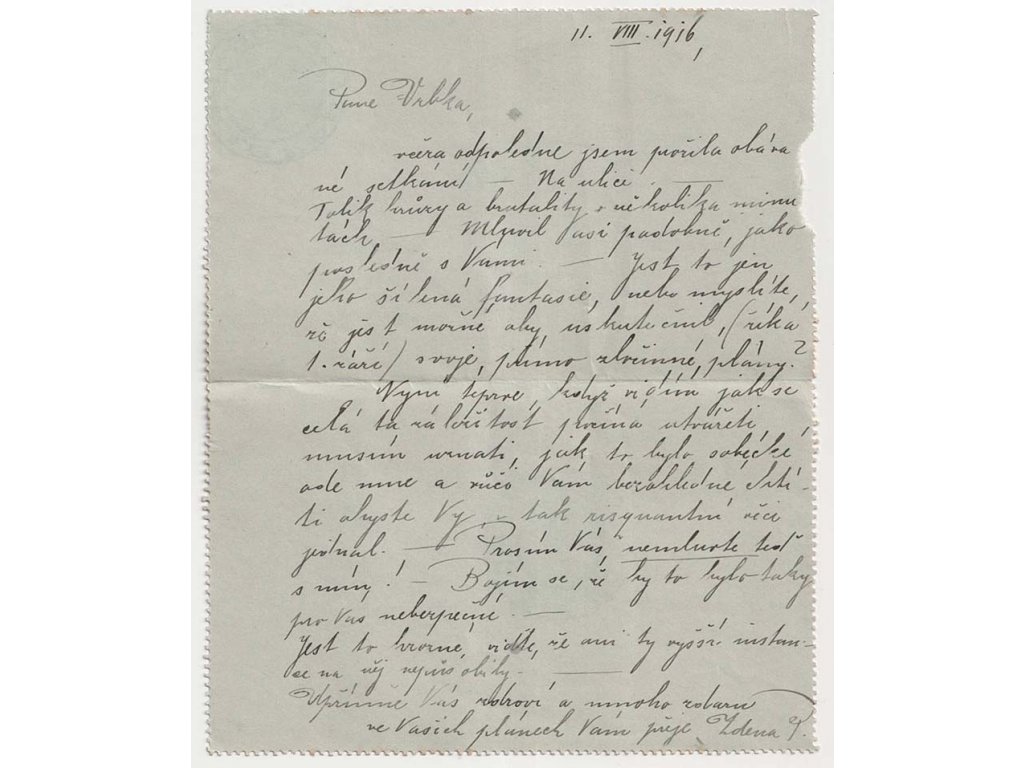 11. VIII. 1916,
Pane Vrbka,
včera odpoledne jsem prožila obáva
né setkání — Na ulici. —
Tolik hrůzy a brutality v několika minu
tách. — Mluvil Vasi podobně, jako
posledně s Vámi. — Jest to jen
jeho šílená fantasie, nebo myslíte,
že jest možné aby uskutečnil, (říká
1. září) svoje, přímo zločinné, plány?
Nyní teprve, když vidím jak se
celá ta záležitost počíná utvářeti,
musím uznati, jak to bylo sobecké
ode mne a vůči Vám bezohledné chtí-
ti abyste Vy, v tak risquantní věci
jednal. — Prosím Vás, nemluvte teď
s ním! — Bojím se, že by to bylo taky
pro Vás nebezpečné. —
Jest to hrozné, viďte, že ani ty vyšší instan-
ce na něj nepůsobily. —
Upřímně Vás zdraví a mnoho zdaru
ve Vašich plánech Vám přeje Zdena P.